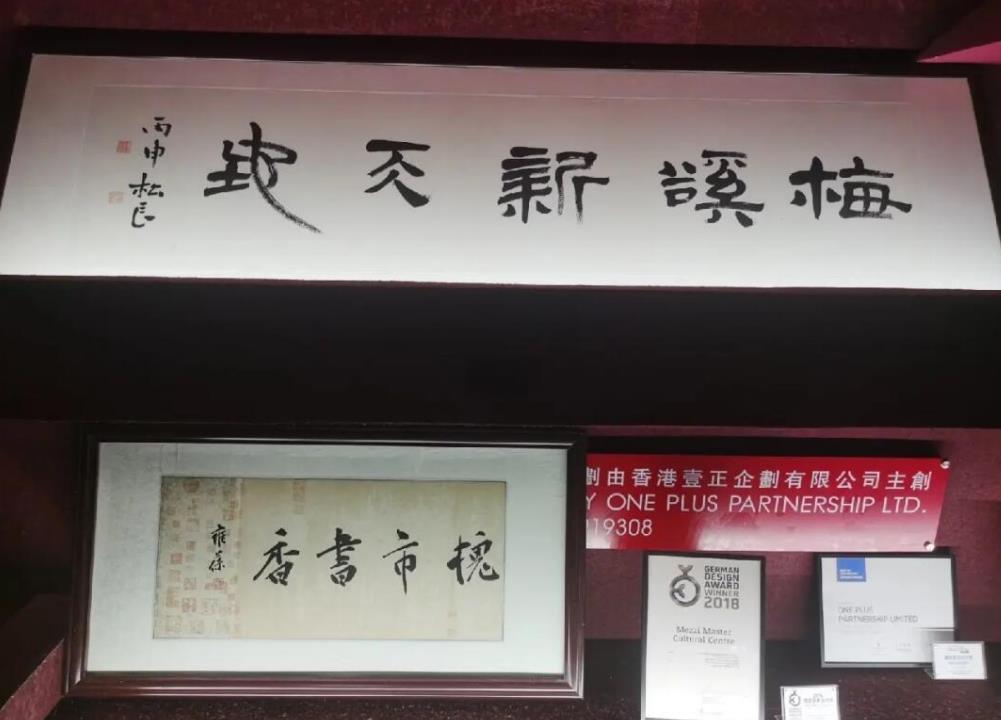 梅谿新天地
丙申 松长
槐市書香
雍葆
劃由香港壹正企劃有限公司主創
Y ONE PLUS PARTNERSHIP LTD.
019308
GERMAN
DESIGN
AWARD
WINNER
2018
Mezzi Master
Cultural Centre
ONE PLUS
PARTNERSHIP LIMITED